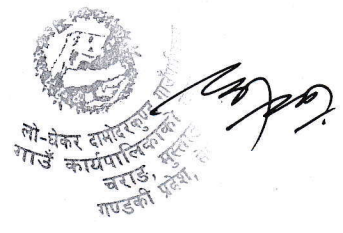 लो-घेकर दामोदरकुण्ड गाउँपालिका
गाउँ कार्यपालिकाको
चराङ, मुस्ताङ
गण्डकी प्रदेश,